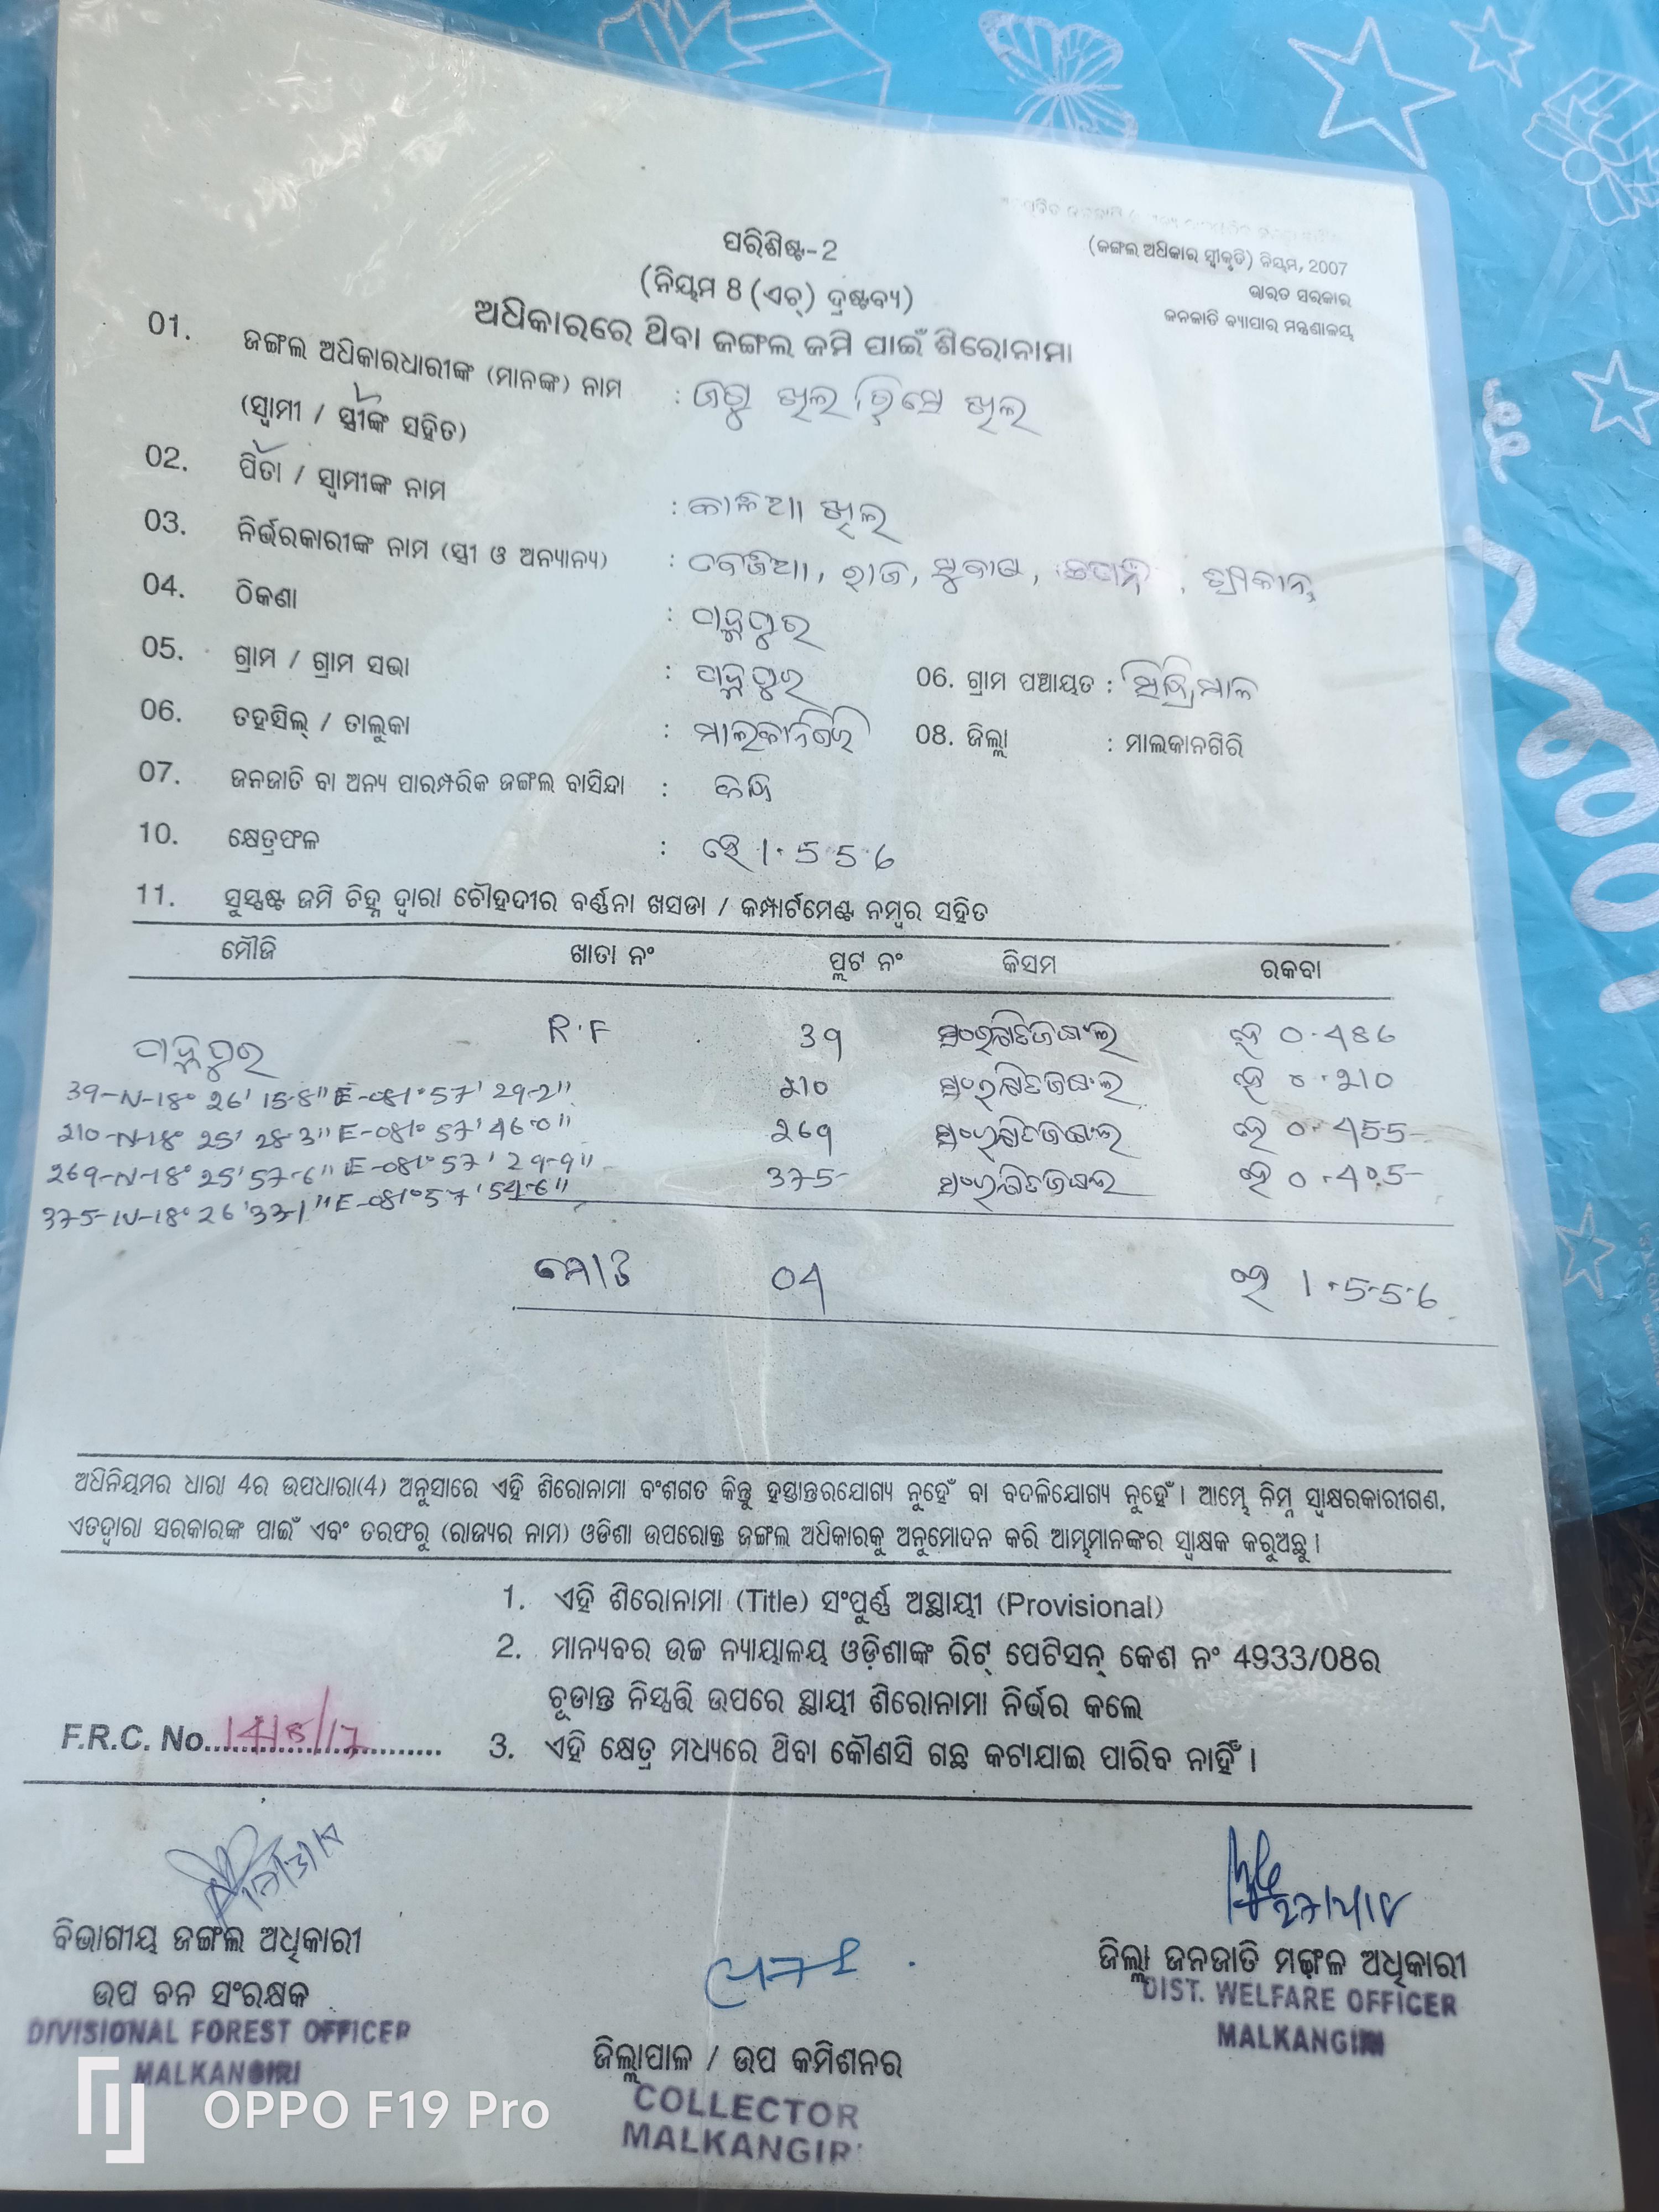 ପରିଶିଷ୍ଟ-2
(ଜଙ୍ଗଲ ଅଧିକାର ସ୍ୱୀକୃତି) ନିୟମ, 2007
(ନିୟମ 8 (ଏଚ୍) ଦ୍ରଷ୍ଟବ୍ୟ)
ଭାରତ ସରକାର
ଜନଜାତି ବ୍ୟାପାର ମନ୍ତ୍ରଣାଳୟ
ଅଧିକାରରେ ଥିବା ଜଙ୍ଗଲ ଜମି ପାଇଁ ଶିରୋନାମା
01. ଜଙ୍ଗଲ ଅଧିକାରଧାରୀଙ୍କ (ମାନଙ୍କ) ନାମ : ଖିଲ ଖିଲ
(ସ୍ୱାମୀ / ସ୍ତ୍ରୀଙ୍କ ସହିତ)
02. ପିତା / ସ୍ୱାମୀଙ୍କ ନାମ : ଖିଲ
03. ନିର୍ଭରକାରୀଙ୍କ ନାମ (ସ୍ତ୍ରୀ ଓ ଅନ୍ୟାନ୍ୟ) : ରାଜ,
04. ଠିକଣା :
05. ଗ୍ରାମ / ଗ୍ରାମ ସଭା : 06. ଗ୍ରାମ ପଞ୍ଚାୟତ :
06. ତହସିଲ୍ / ତାଲୁକା : ମାଲକାନଗିରି 08. ଜିଲ୍ଲା : ମାଲକାନଗିରି
07. ଜନଜାତି ବା ଅନ୍ୟ ପାରମ୍ପରିକ ଜଙ୍ଗଲ ବାସିନ୍ଦା :
10. କ୍ଷେତ୍ରଫଳ : ହେ 1.556
11. ସୁସ୍ପଷ୍ଟ ଜମି ଚିହ୍ନ ଦ୍ୱାରା ଚୌହଦୀର ବର୍ଣ୍ଣନା ଖସଡା / କମ୍ପାର୍ଟମେଣ୍ଟ ନମ୍ବର ସହିତ
ମୌଜି ଖାତା ନଂ ପ୍ଲଟ ନଂ କିସମ ରକବା
R.F 39 ସଂରକ୍ଷିତ ଜଙ୍ଗଲ ହେ 0.486
39-N-18° 26' 15.8" E-081° 57' 29.2"
210 ସଂରକ୍ଷିତ ଜଙ୍ଗଲ ହେ 0.210
210-N-18° 25' 28.3" E-081° 57' 46.0"
269 ସଂରକ୍ଷିତ ଜଙ୍ଗଲ ହେ 0.455
269-N-18° 25' 57.6" E-081° 57' 29.9"
375 ସଂରକ୍ଷିତ ଜଙ୍ଗଲ ହେ 0.405
375-N-18° 26' 33.1" E-081° 57' 54.6"
ମୋଟ 04 ହେ 1.556
ଅଧିନିୟମର ଧାରା 4ର ଉପଧାରା(4) ଅନୁସାରେ ଏହି ଶିରୋନାମା ବଂଶଗତ କିନ୍ତୁ ହସ୍ତାନ୍ତରଯୋଗ୍ୟ ନୁହେଁ ବା ବଦଳିଯୋଗ୍ୟ ନୁହେଁ । ଆମ୍ଭେ ନିମ୍ନ ସ୍ୱାକ୍ଷରକାରୀଗଣ,
ଏତଦ୍ୱାରା ସରକାରଙ୍କ ପାଇଁ ଏବଂ ତରଫରୁ (ରାଜ୍ୟର ନାମ) ଓଡିଶା ଉପରୋକ୍ତ ଜଙ୍ଗଲ ଅଧିକାରକୁ ଅନୁମୋଦନ କରି ଆମ୍ଭମାନଙ୍କର ସ୍ୱାକ୍ଷକ କରୁଅଛୁ ।
1. ଏହି ଶିରୋନାମା (Title) ସଂପୁର୍ଣ୍ଣ ଅସ୍ଥାୟୀ (Provisional)
2. ମାନ୍ୟବର ଉଚ୍ଚ ନ୍ୟାୟାଳୟ ଓଡ଼ିଶାଙ୍କ ରିଟ୍ ପେଟିସନ୍ କେଶ ନଂ 4933/08ର
ଚୂଡାନ୍ତ ନିସ୍ପତ୍ତି ଉପରେ ସ୍ଥାୟୀ ଶିରୋନାମା ନିର୍ଭର କଲେ
F.R.C. No.
3. ଏହି କ୍ଷେତ୍ର ମଧ୍ୟରେ ଥିବା କୌଣସି ଗଛ କଟାଯାଇ ପାରିବ ନାହିଁ ।
ବିଭାଗୀୟ ଜଙ୍ଗଲ ଅଧିକାରୀ
ଉପ ବନ ସଂରକ୍ଷକ
DIVISIONAL FOREST OFFICER
MALKANGIRI
ଜିଲ୍ଲାପାଳ / ଉପ କମିଶନର
COLLECTOR
MALKANGIRI
ଜିଲ୍ଲା ଜନଜାତି ମଙ୍ଗଳ ଅଧିକାରୀ
DIST. WELFARE OFFICER
MALKANGIRI
OPPO F19 Pro